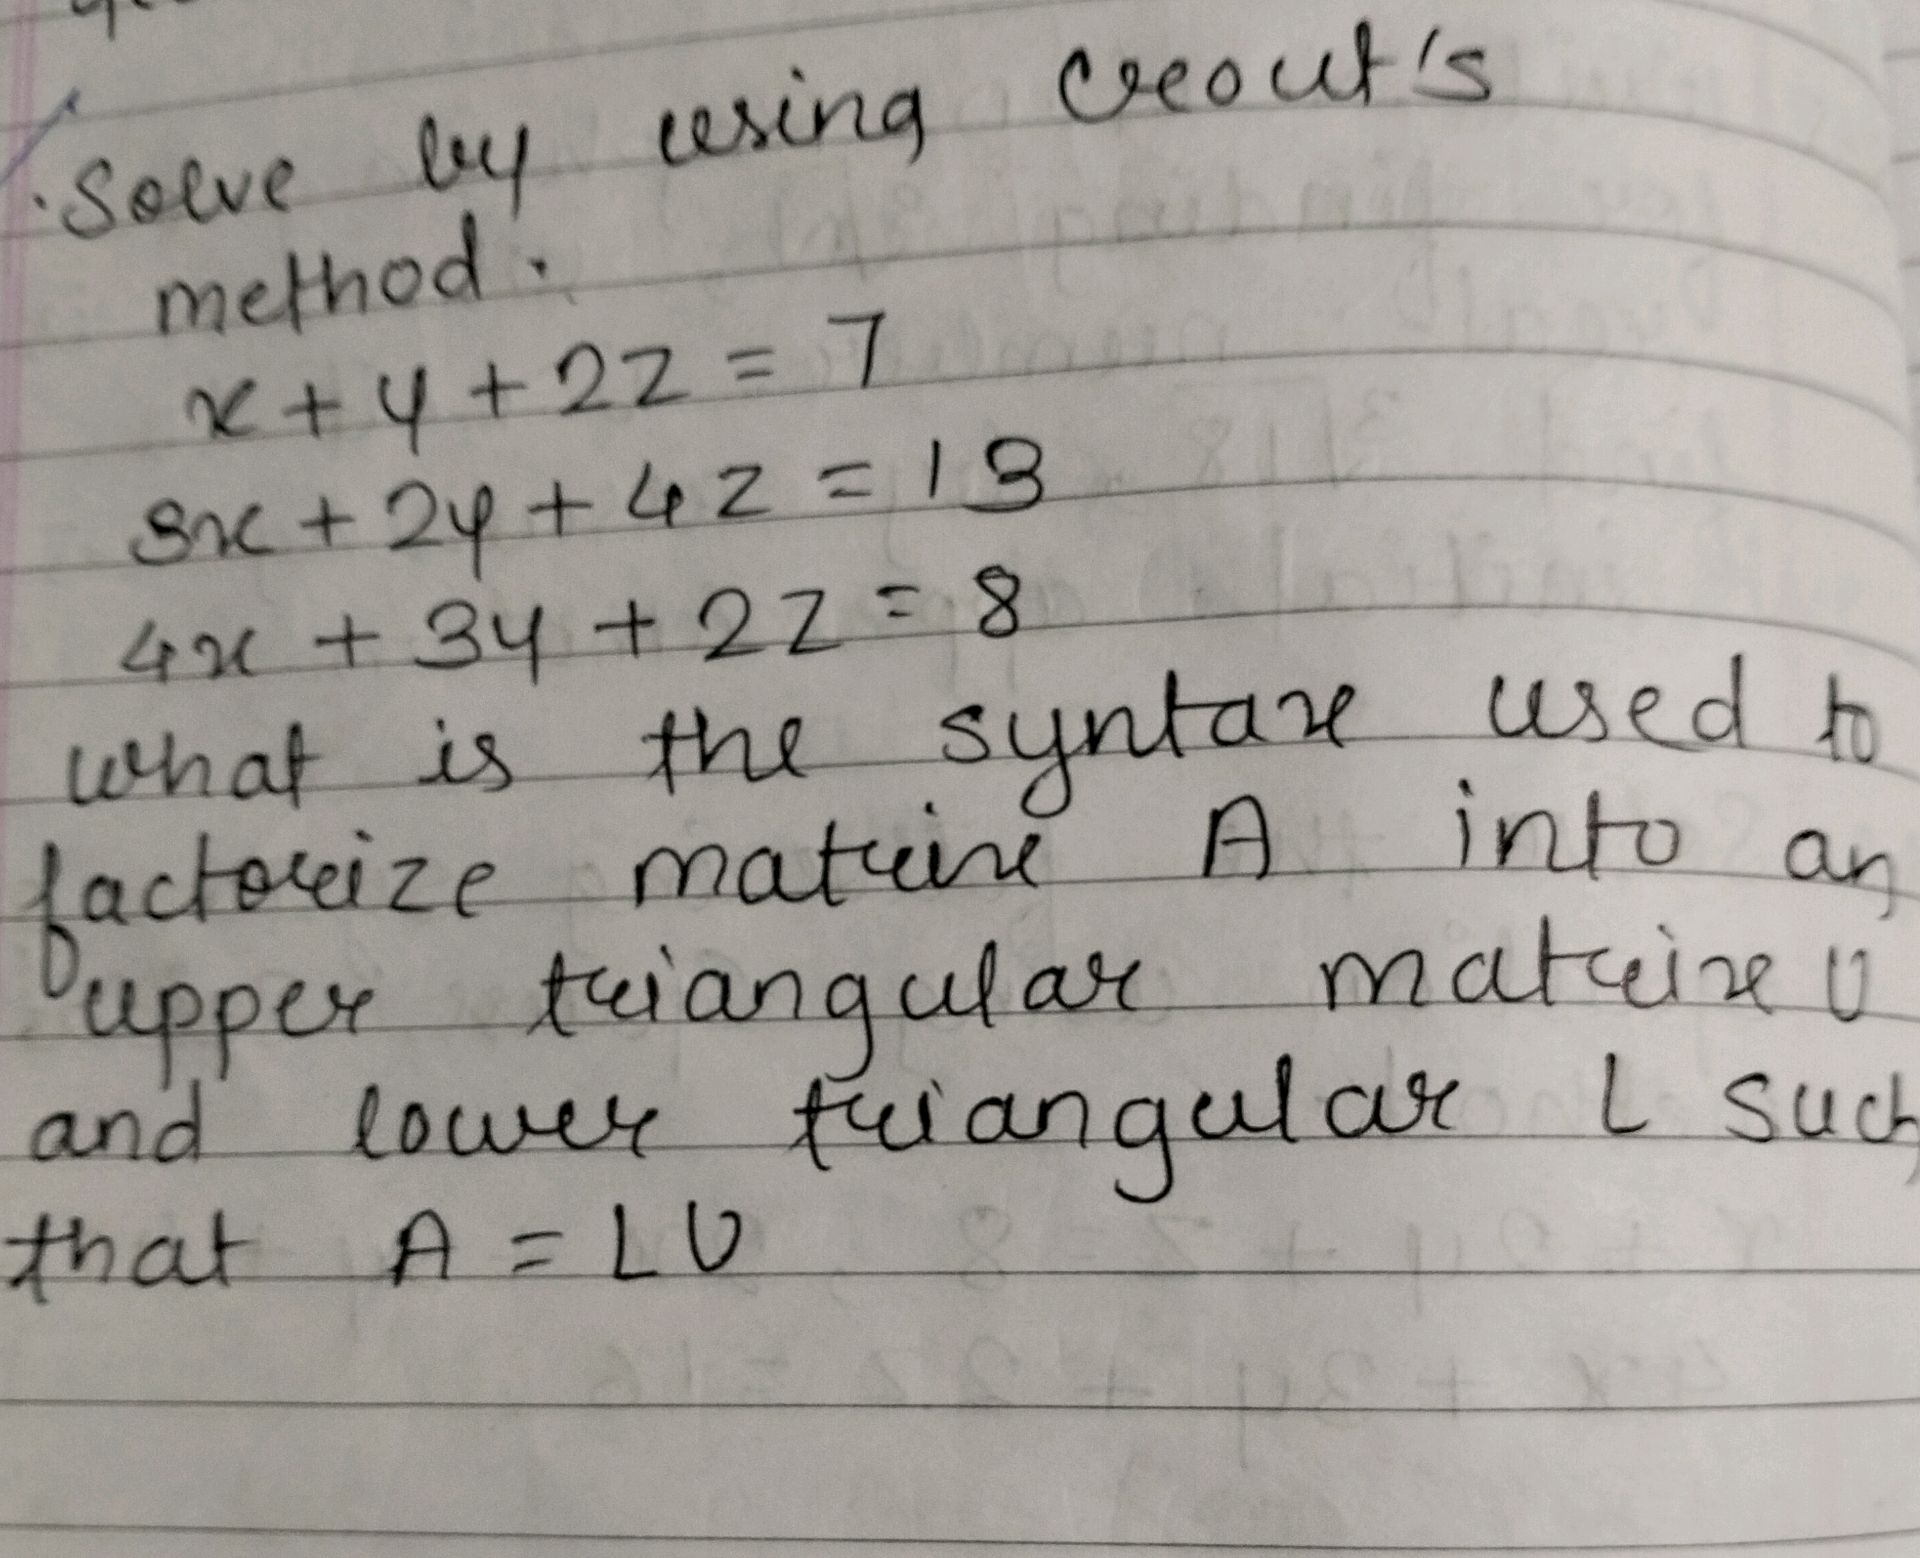 Solve by using Crout's
method.
x + y + 2z = 7
3x + 2y + 4z = 13
4x + 3y + 2z = 8
what is the syntax used to
factorize matrix A into an
upper triangular matrix U
and lower triangular L such
that A = LU